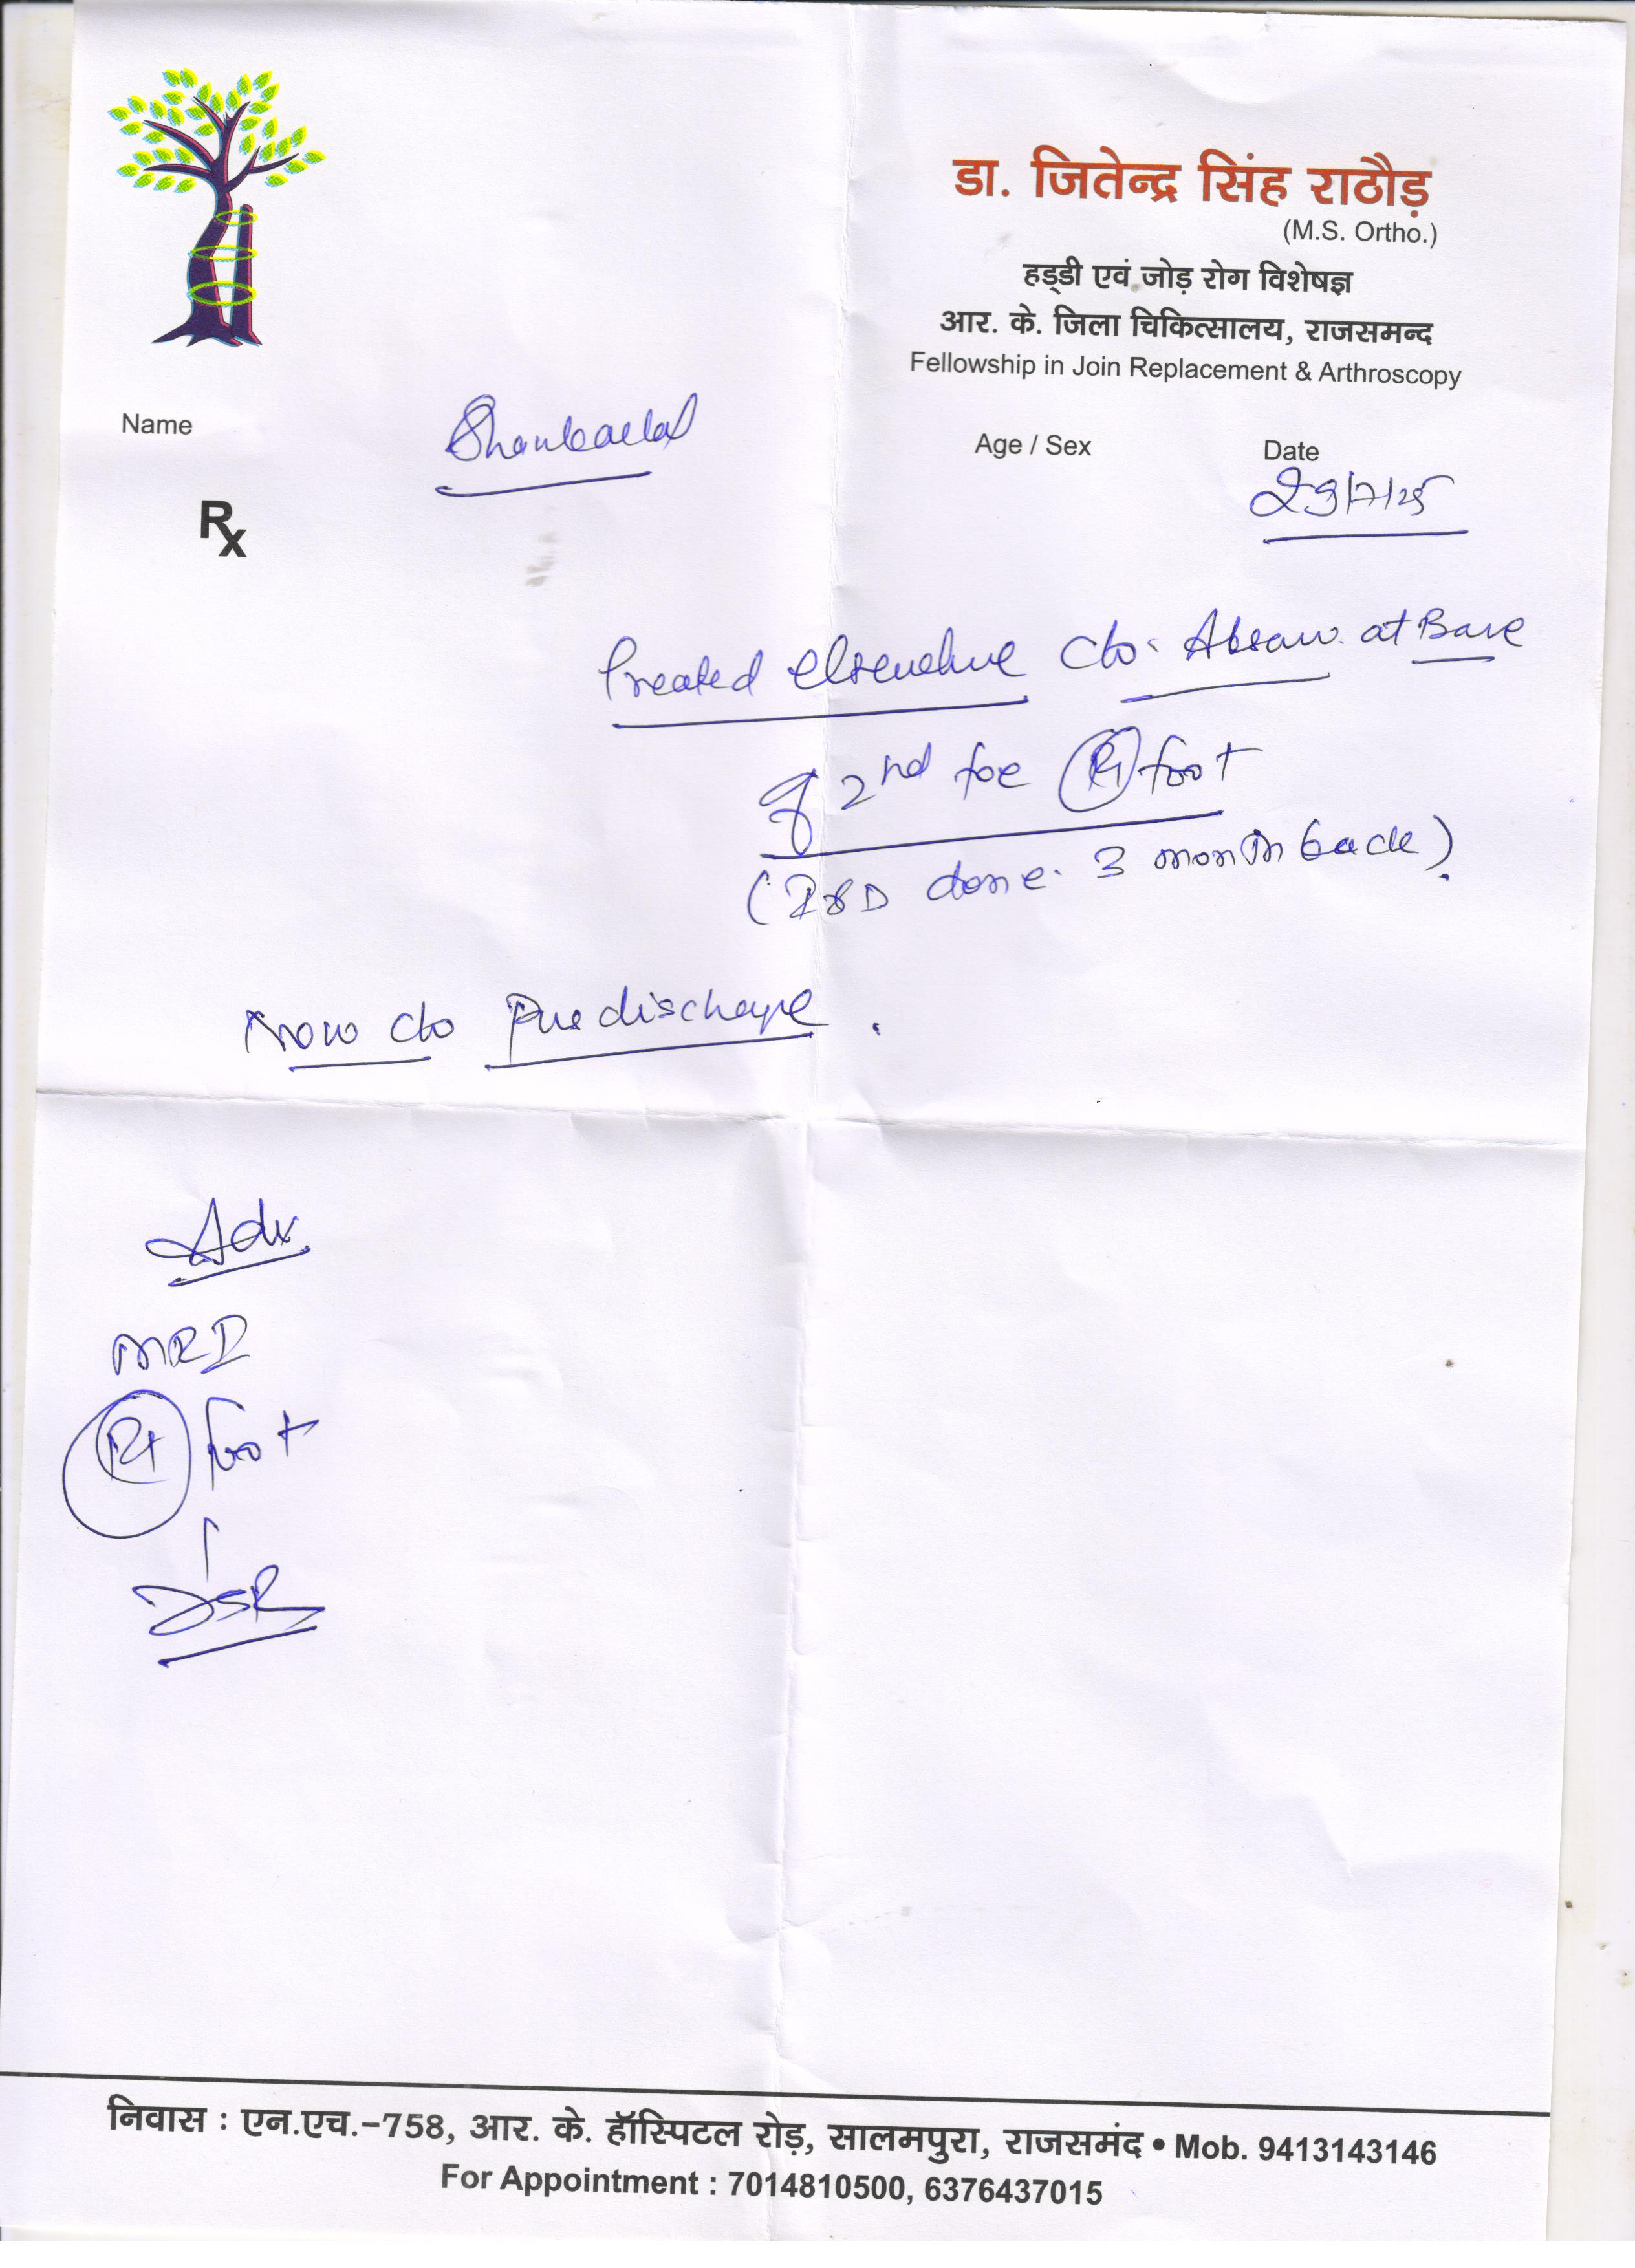 डा. जितेन्द्र सिंह राठौड़
(M.S. Ortho.)
हड्डी एवं जोड़ रोग विशेषज्ञ
आर. के. जिला चिकित्सालय, राजसमन्द
Fellowship in Join Replacement & Arthroscopy
Name Shankarlal Age / Sex Date
29/7/25
Rx
Treated elsewhere c/o. at Base
of 2nd toe Rt foot
(I&D done. 3 month back).
Now c/o Pus discharge.
Adv.
MRI
Rt foot
निवास : एन.एच.-758, आर. के. हॉस्पिटल रोड़, सालमपुरा, राजसमंद • Mob. 9413143146
For Appointment : 7014810500, 6376437015